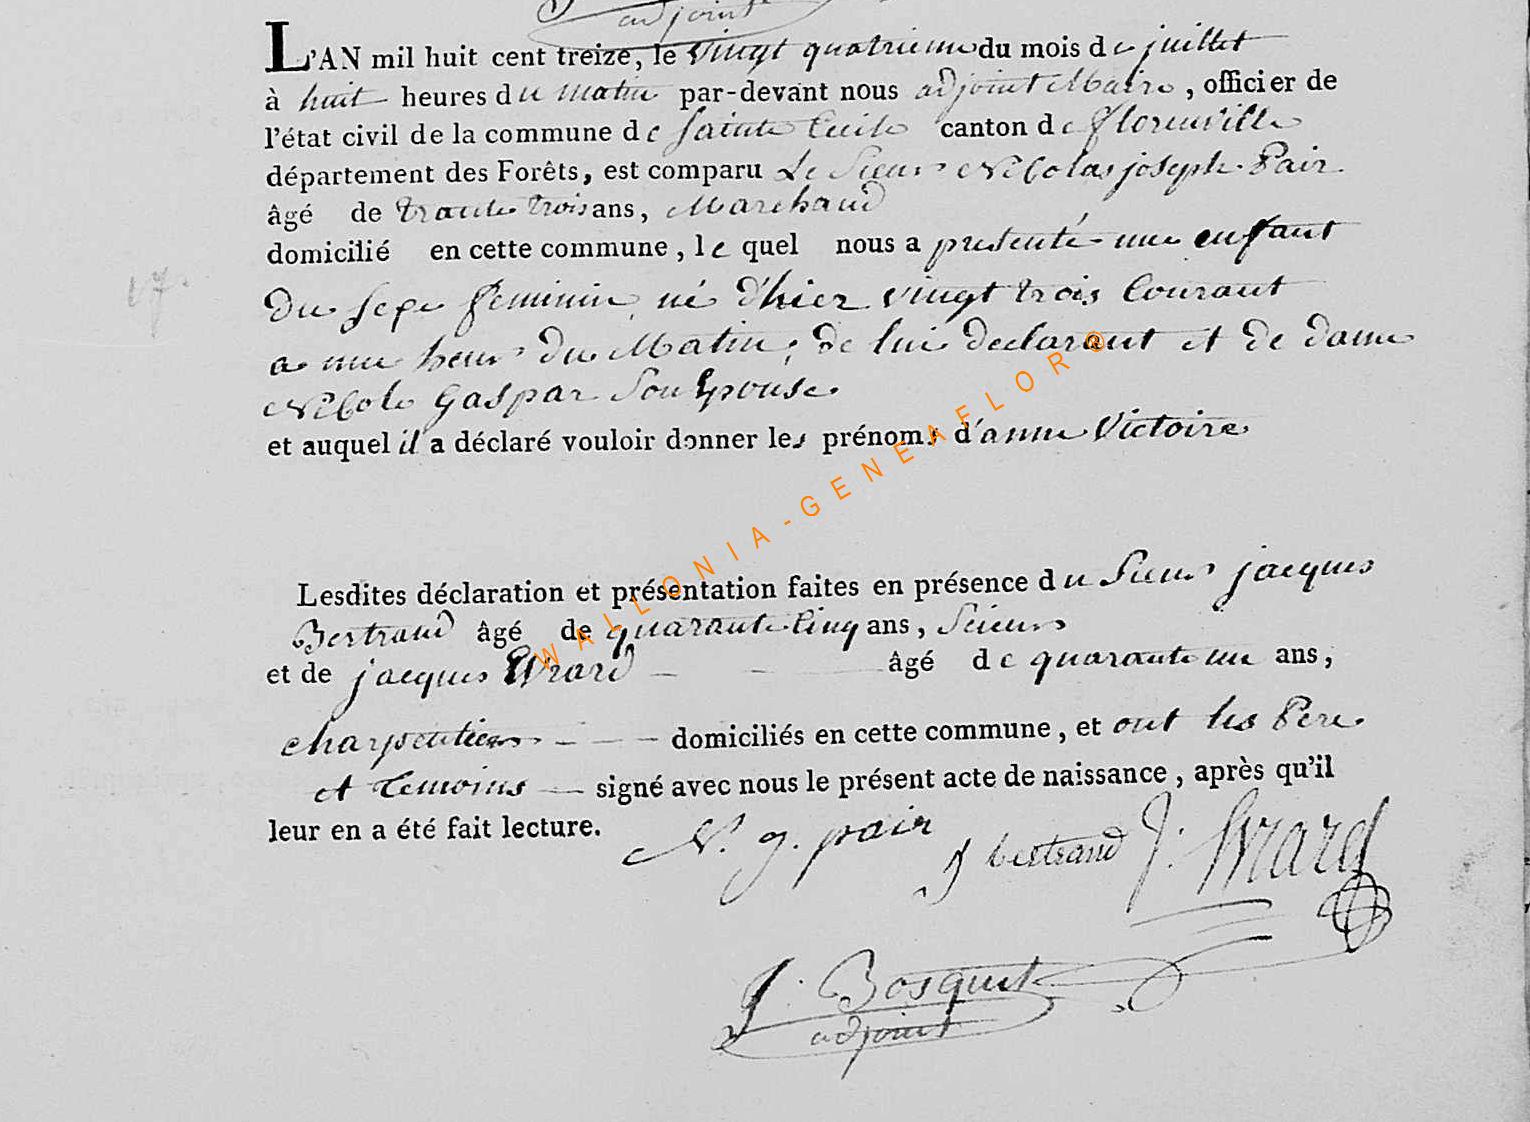 adjoint
L'AN mil huit cent treize, le vingt quatrieme du mois de juillet
à huit heures du matin par-devant nous adjoint Maire, officier de
l'état civil de la commune de Sainte Cecile canton de florenville
département des Forêts, est comparu Le Sieur Nicolas joseph Pair
âgé de trente trois ans, Marchand
domicilié en cette commune, le quel nous a presenté une enfant
17.
Du sexe feminin né d'hier vingt trois Courant
a une heure du Matin, de lui declarant et de dame
Nicole Gaspar Son Epouse.
et auquel il a déclaré vouloir donner les prénoms d'anne Victoire
WALLONIA-GENEAFLOR®
Lesdites déclaration et présentation faites en présence du Sieur jacques
Bertrand âgé de quarante Cinq ans, Scieur
et de jacques Evrard âgé de quarante un ans,
charpentier domiciliés en cette commune, et ont les Pere
et Temoins signé avec nous le présent acte de naissance, après qu'il
leur en a été fait lecture.
N. j. pair J bertrand J. Evrard
J. Bosquet
adjoint